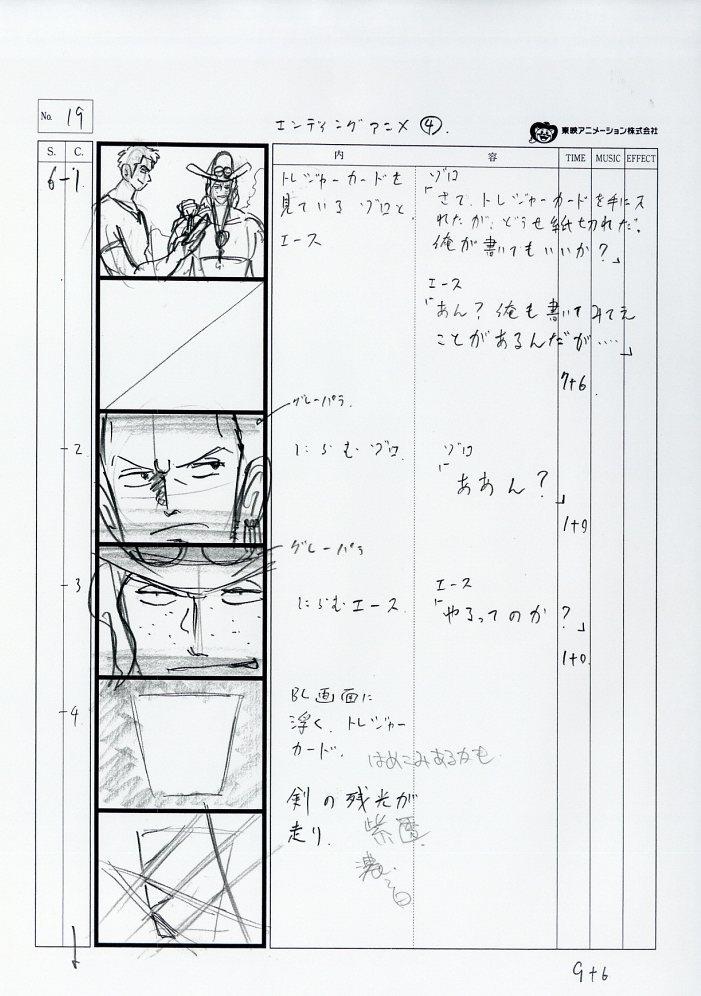 No. 19
エンディングアニメ ④.
東映アニメーション株式会社
S. C. 内 容 TIME MUSIC EFFECT
6-1
トレジャーカードを
見ている ゾロと、
エース
ゾロ
「さて、トレジャーカードを手に入
れたが、どうせ紙切れだ。
俺が書いてもいいか?」
エース
「あん?俺も書いてみてえ
ことがあるんだが‥‥」
7+6
-2
グレーパラ
にらむ ゾロ.
ゾロ
「ああん?」
1+0
-3
グレーパラ
にらむエース
エース
「やるってのか?」
1+0
-4
BL画面に
浮く、トレジャー
カード.
はめこみあるかも
剣の残光が
走り.
9+6